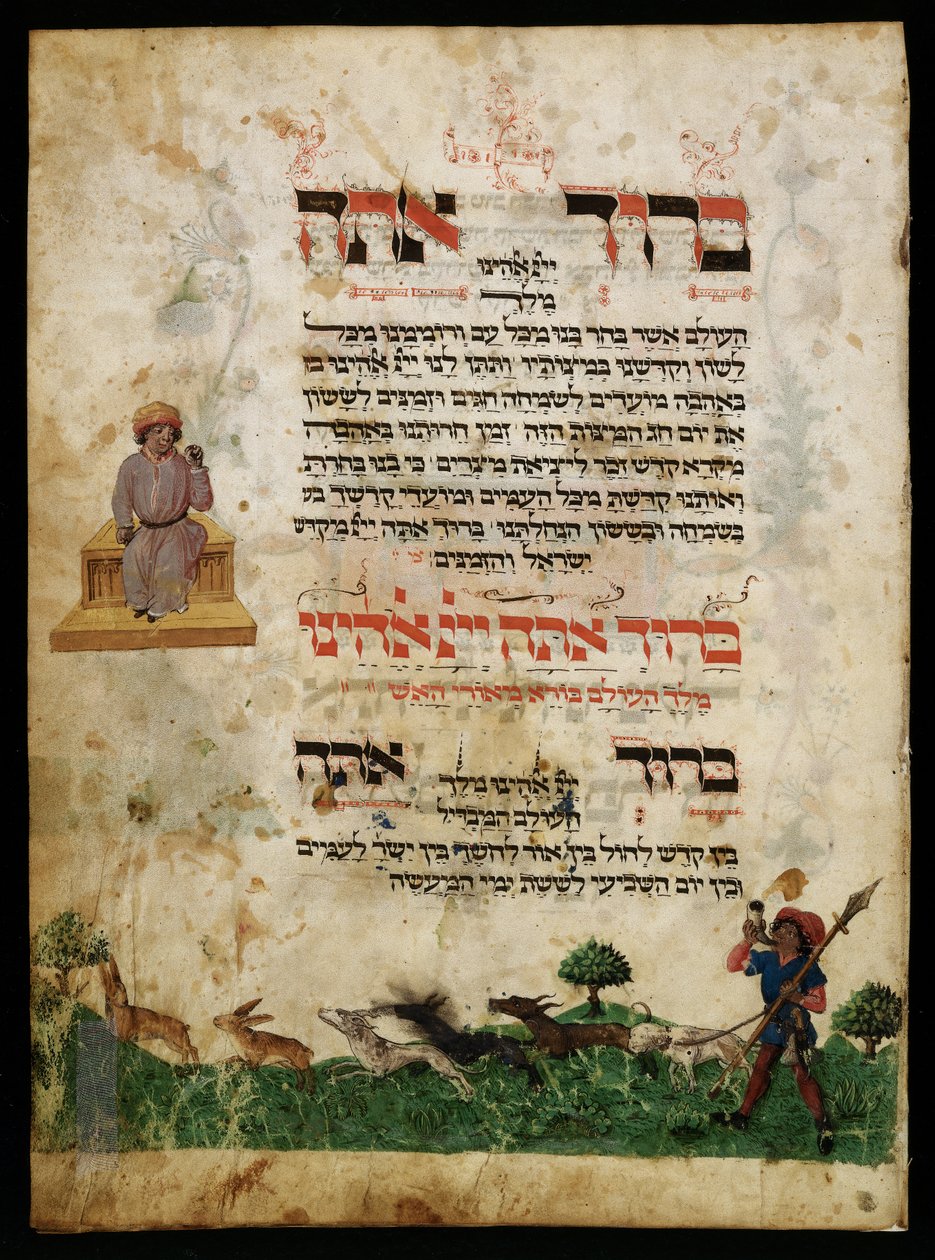 ברוך אתה
ייי אֱלֹהֵינוּ
מֶלֶךְ
הָעוֹלָם אֲשֶׁר בָּחַר בָּנוּ מִכָּל עַם וְרוֹמְמָנוּ מִכָּל
לָשׁוֹן וְקִדְּשָׁנוּ בְּמִצְוֹתָיו וַתִּתֶּן לָנוּ ייי אֱלֹהֵינוּ
בְּאַהֲבָה מוֹעֲדִים לְשִׂמְחָה חַגִּים וּזְמַנִּים לְשָׂשׂוֹן
אֶת יוֹם חַג הַמַּצּוֹת הַזֶּה זְמַן חֵרוּתֵנוּ בְּאַהֲבָה
מִקְרָא קֹדֶשׁ זֵכֶר לִיצִיאַת מִצְרַיִם כִּי בָנוּ בָחַרְתָּ
וְאוֹתָנוּ קִדַּשְׁתָּ מִכָּל הָעַמִּים וּמוֹעֲדֵי קָדְשֶׁךָ
בְּשִׂמְחָה וּבְשָׂשׂוֹן הִנְחַלְתָּנוּ בָּרוּךְ אַתָּה ייי מְקַדֵּשׁ
יִשְׂרָאֵל וְהַזְּמַנִּים
בָּרוּךְ אַתָּה ייי אֱלֹהֵינוּ
מֶלֶךְ הָעוֹלָם בּוֹרֵא מְאוֹרֵי הָאֵשׁ
ברוך אתה
ייי אֱלֹהֵינוּ מֶלֶךְ
הָעוֹלָם הַמַּבְדִּיל
בֵּין קֹדֶשׁ לְחוֹל בֵּין אוֹר לְחֹשֶׁךְ בֵּין יִשְׂרָ לָעַמִּים
וּבֵין יוֹם הַשְּׁבִיעִי לְשֵׁשֶׁת יְמֵי הַמַּעֲשֶׂה